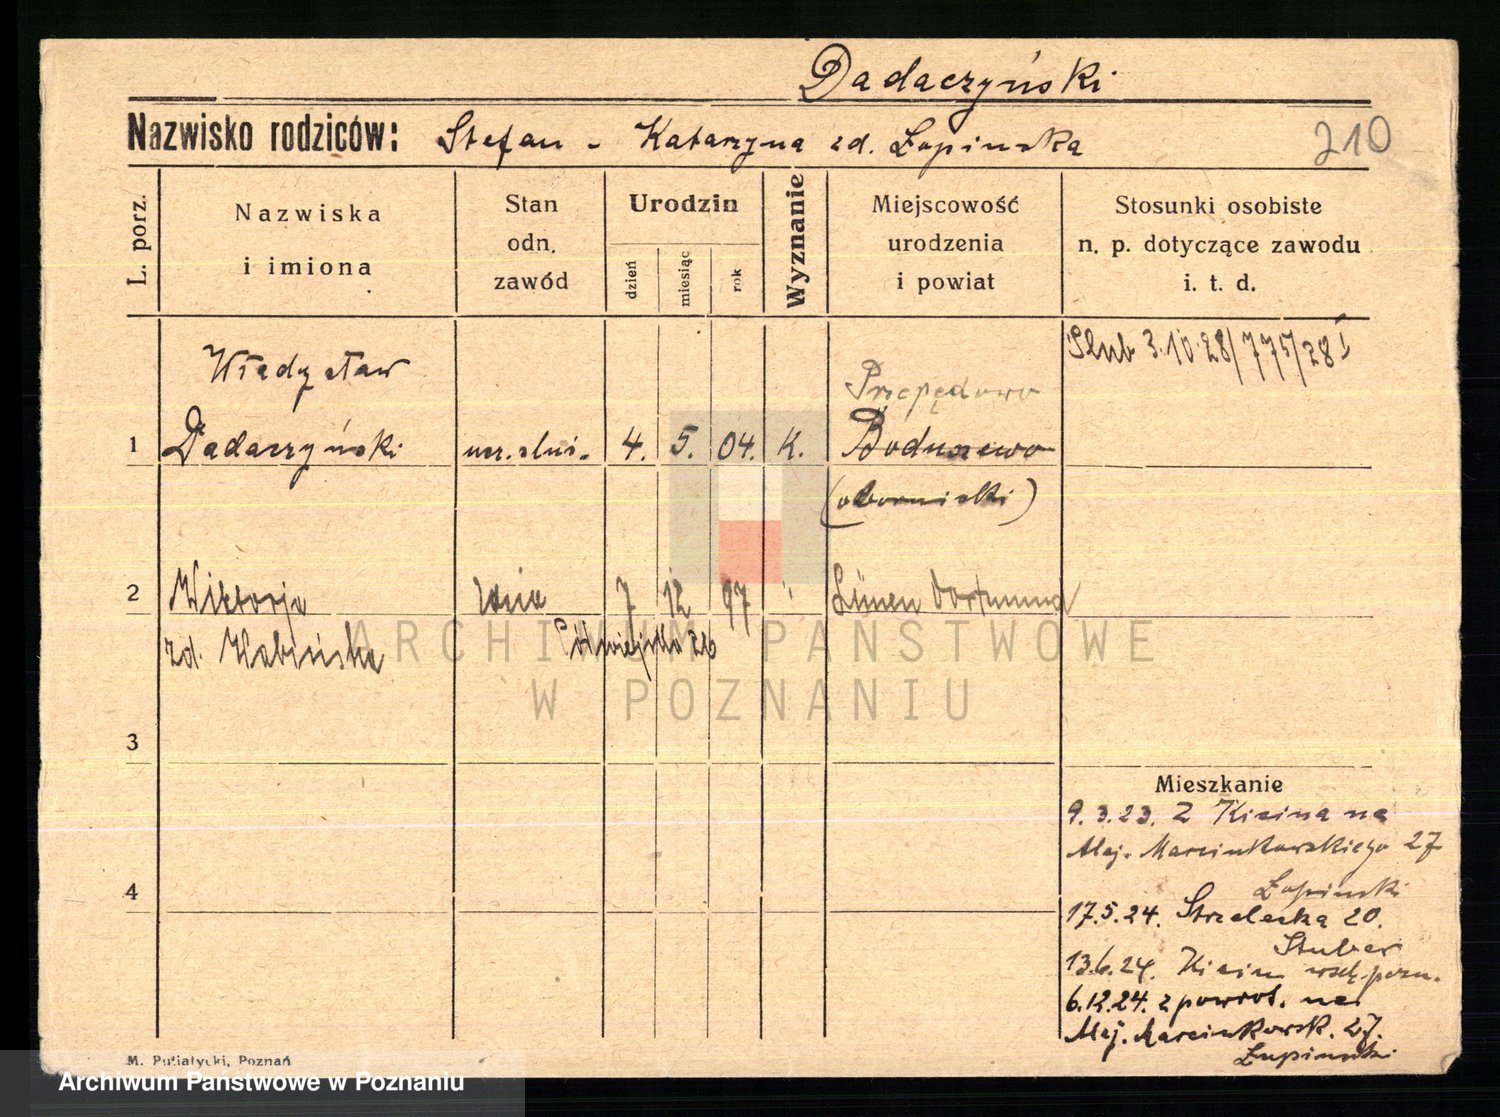 Dadaczyński
Nazwisko rodziców: Stefan - Katarzyna zd. Łopinska
210
L. porz.
Nazwiska
i imiona
Stan
odn.
zawód
Urodzin
dzień
miesiąc
rok
Wyznanie
Miejscowość
urodzenia
i powiat
Stosunki osobiste
n. p. dotyczące zawodu
i. t. d.
Ślub 3.10.28/775/28
Władysław
Przepędowo
1 Dadaczyński ucz. ślus. 4. 5. 04. K. Boduszewo
(obornicki)
2 Wiktorja 7 12 97 Lünen Dortmund
zd. Półwiejska 26
ARCHIWUM PAŃSTWOWE
W POZNANIU
3
Mieszkanie
9.3.23. Z Kicina na
Alej. Marcinkowskiego 27
Łopinski
4
17.5.24. Strzelecka 20.
Stuber
13.6.24. Kicin wsch. pozn.
6.12.24. z powrot. na
Alej. Marcinkowsk. 27.
Łopinski
M. Putiatycki, Poznań
Archiwum Państwowe w Poznaniu